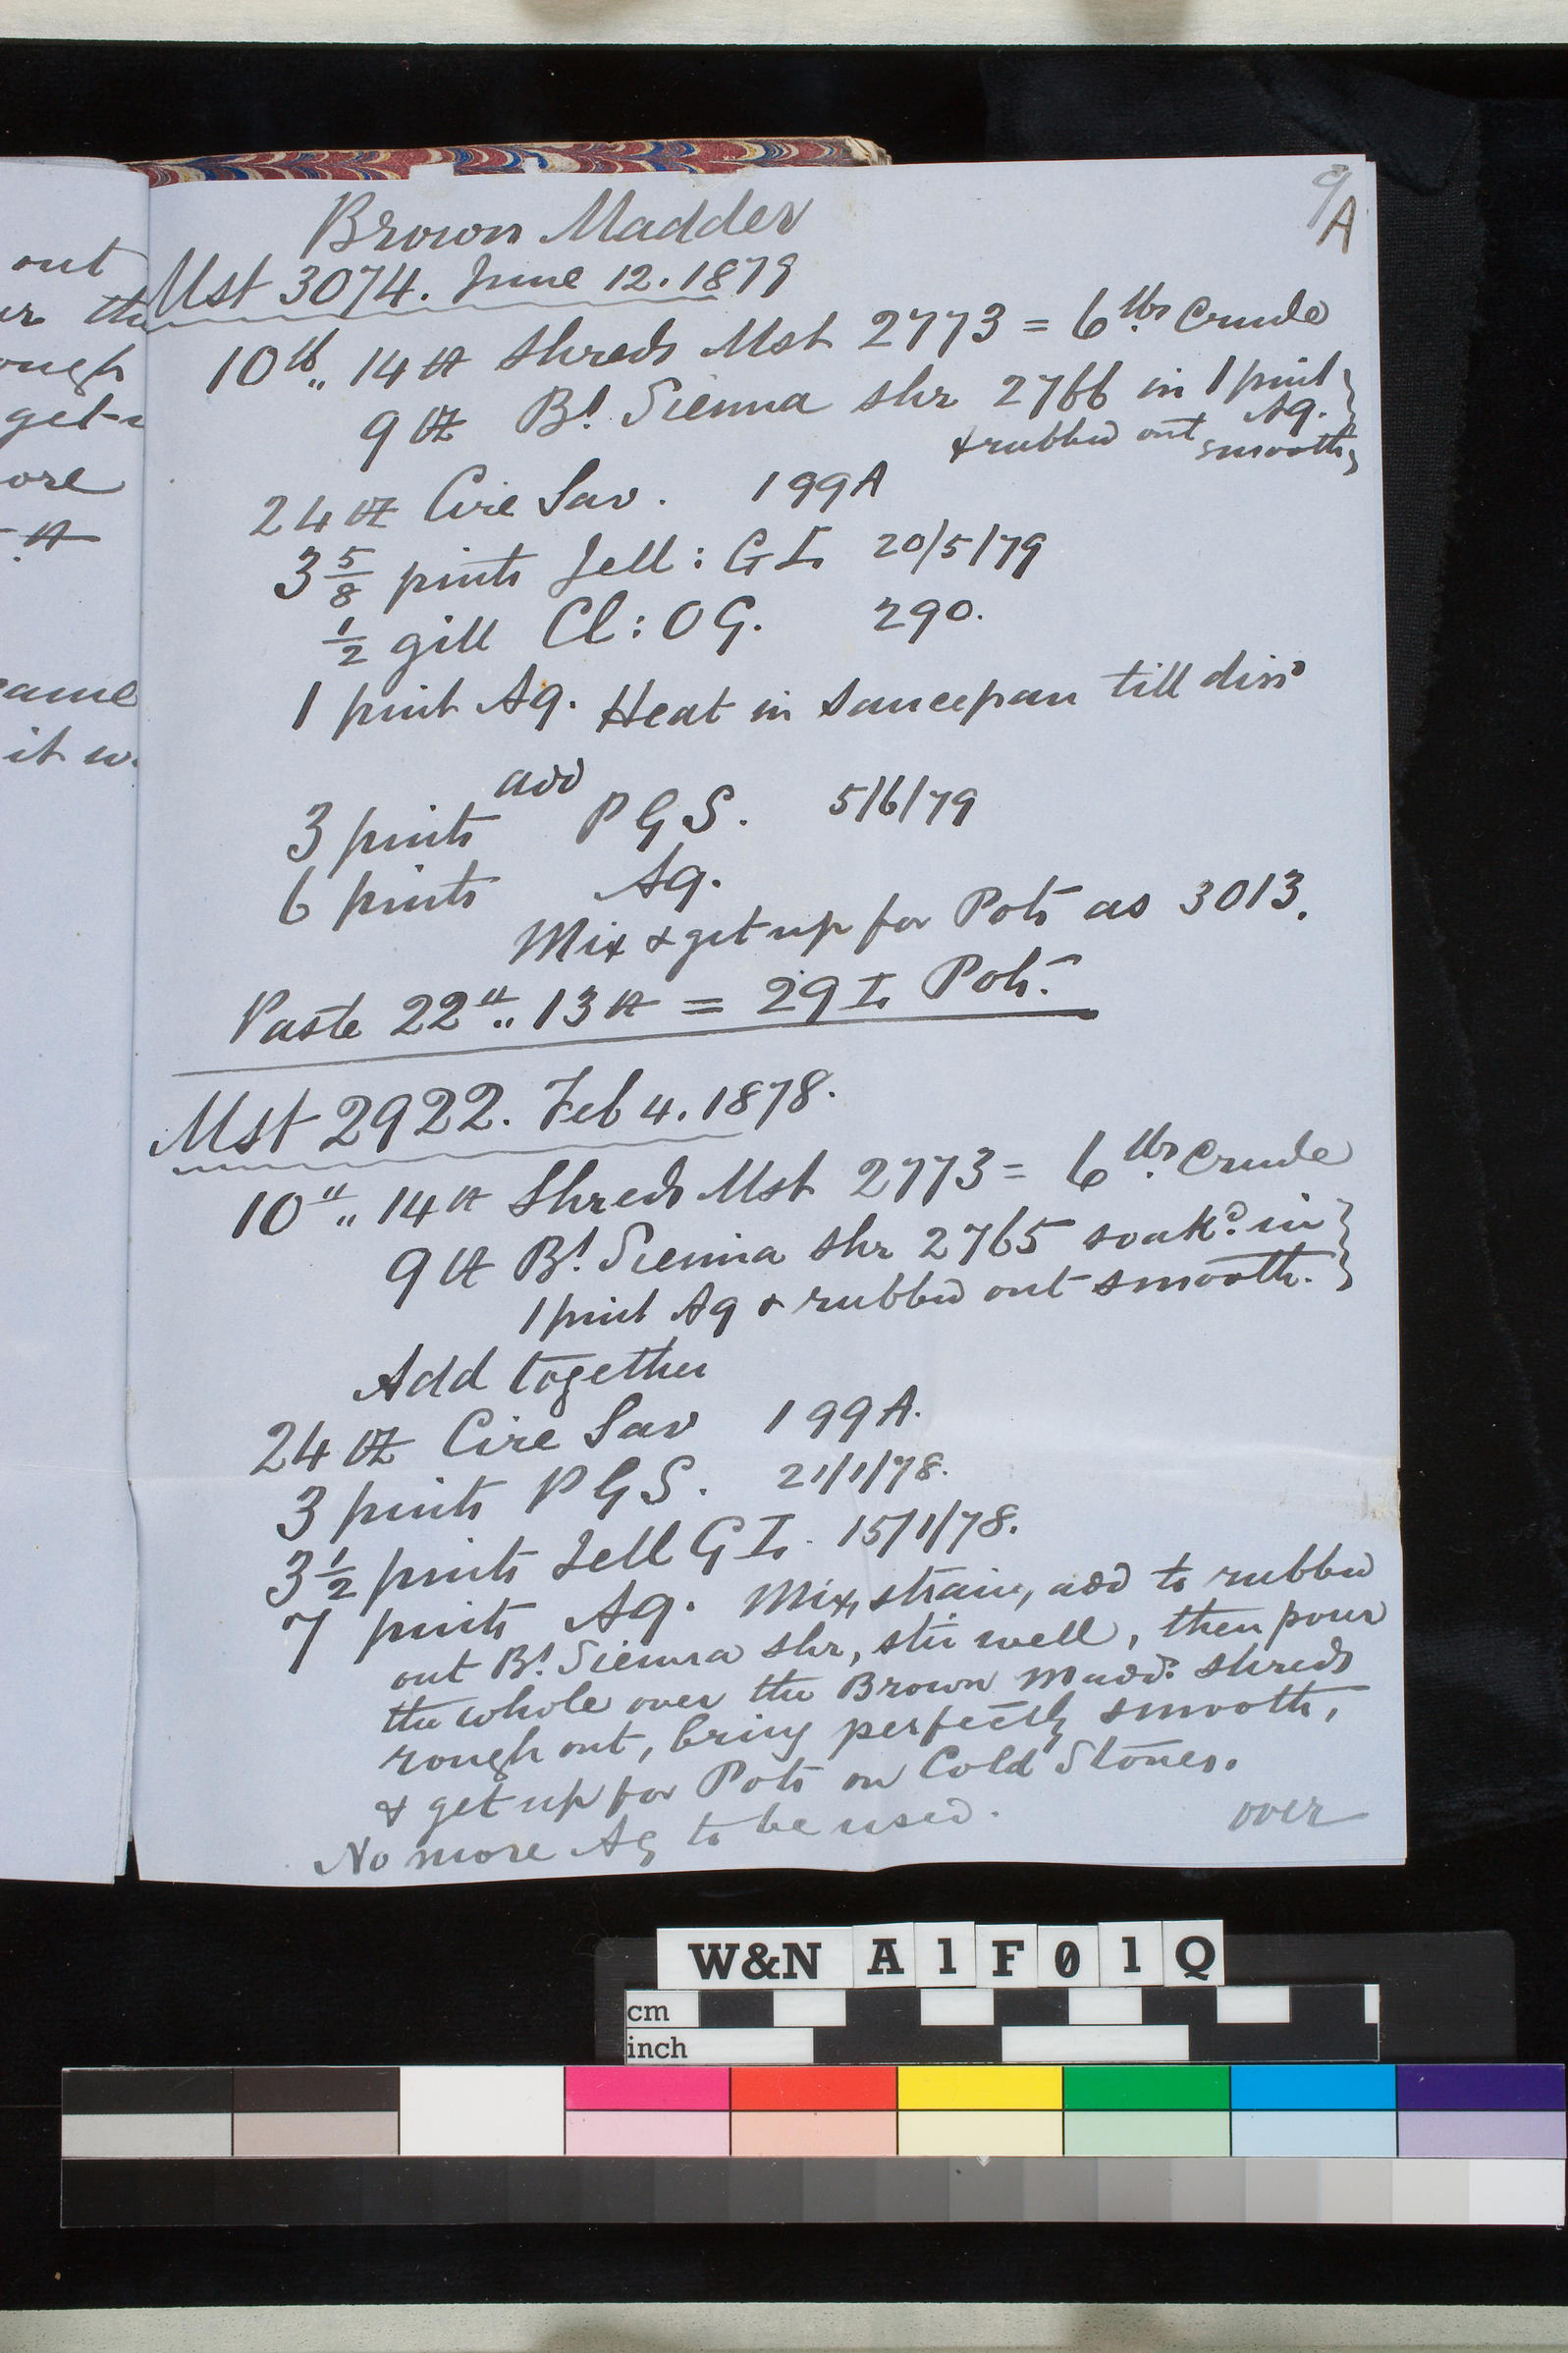 9
A
Brown Madder
Mst 3074. June 12. 1879
10 lb,, 14 oz Shreds Mst 2773 = 6 lbs. Crude
9 oz Bt. Sienna shr 2766 in 1 pint
Aq.
& rubbed out smooth
24 oz Cire Sav. 199A
3 5/8 pints Jell: G I. 20/5/79
1/2 gill Cl: O G. 290.
1 pint Aq. Heat in Saucepan till diss
add
3 pints P G S. 5/6/79
6 pints Aq.
Mix & get up for Pots as 3013.
Paste 22 lb,, 13 oz = 29 I. Pots.
Mst 2922. Feb 4. 1878.
10 lb,, 14 oz Shreds Mst 2773 = 6 lbs. Crude
9 oz Bt. Sienna shr 2765 soakd. in
1 pint Aq & rubbed out smooth.
Add together
24 oz Cire Sav 199A.
3 pints P G S. 21/1/78.
3 1/2 pints Jell G I. 15/1/78.
7 pints Aq. Mix, strain, add to rubbed
out Bt. Sienna shr, stir well, then pour
the whole over the Brown Madd. shreds
rough out, bring perfectly smooth,
& get up for Pots on Cold Stones.
No more Aq to be used.
over
out
ough
ore
ame
it w.
W&N A1F01Q
cm
inch